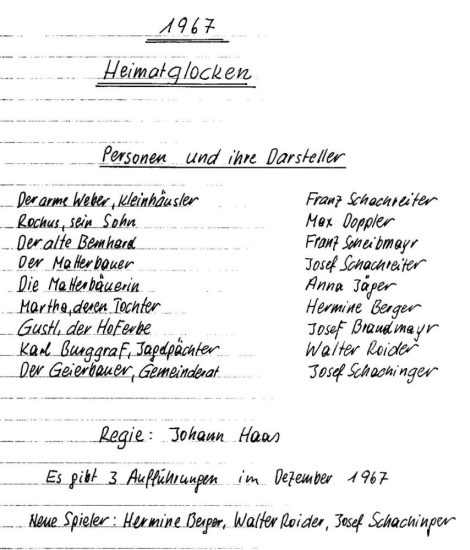 1967
Heimatglocken
Personen und ihre Darsteller
Der arme Weber, Kleinhäusler Franz Schachreiter
Rochus, sein Sohn Max Doppler
Der alte Bernhard Franz Schreibmayr
Der Matterbauer Josef Schachreiter
Die Matterbäuerin Anna Jäger
Martha, deren Tochter Hermine Berger
Gustl, der Hoferbe Josef Brandmayr
Karl Burggraf, Jagdpächter Walter Roider
Der Geierbauer, Gemeinderat Josef Schachinger
Regie: Johann Haas
Es gibt 3 Aufführungen im Dezember 1967
Neue Spieler: Hermine Berger, Walter Roider, Josef Schachinger